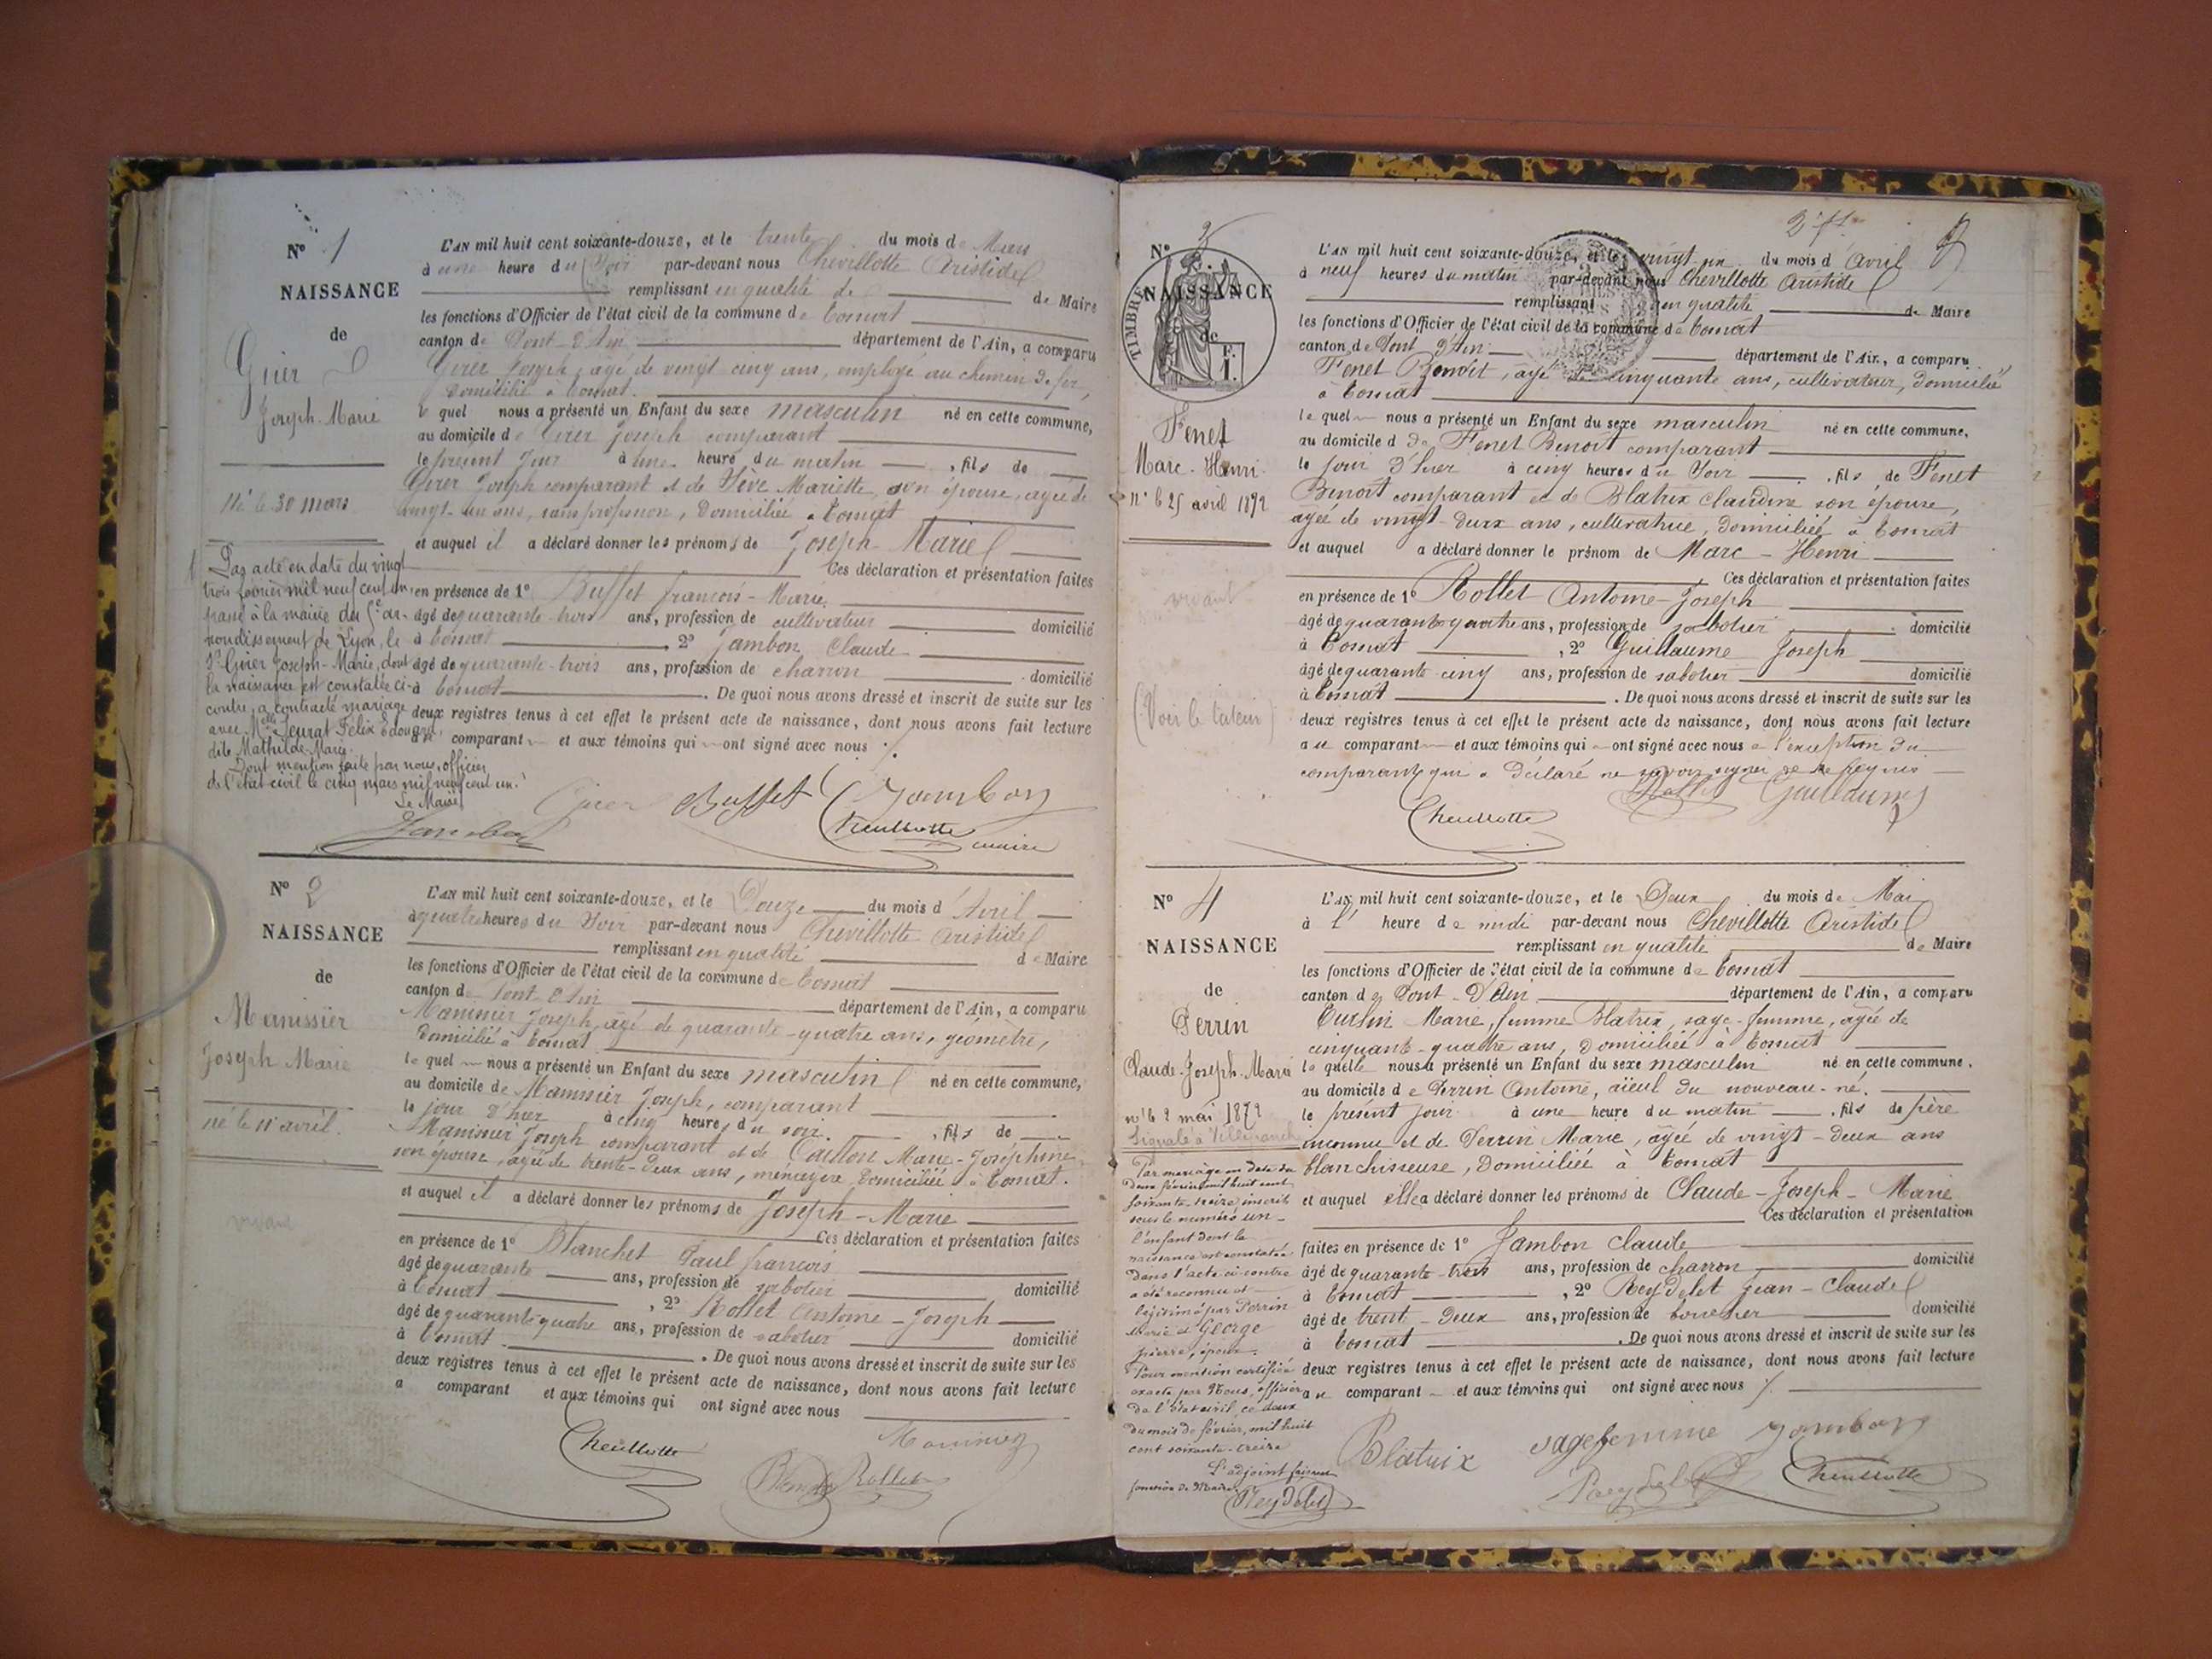 N° 1
NAISSANCE
de
Girer
Joseph-Marie
né le 30 mars
Par acte en date du vingt
trois février mil neuf cent un,
passé à la mairie du 5e ar-
rondissement de Lyon, le
Sr Girer Joseph-Marie, dont
la naissance est constatée ci-
contre, a contracté mariage
avec Melle Seurat Félix Edouard,
dite Mathilde-Marie.
Dont mention faite par nous, officier
de l'état civil le cinq mars mil neuf cent un.
Le Maire
L'AN mil huit cent soixante-douze, et le trente du mois de Mars
à une heure du soir par-devant nous Chevillotte Aristide
remplissant en qualité de de Maire
les fonctions d'Officier de l'état civil de la commune de Cornat
canton de Pont-d'Ain département de l'Ain, a comparu
Girer Joseph, agé de vingt cinq ans, employé au chemin de fer,
domicilié à Cornat.
le quel nous a présenté un Enfant du sexe masculin né en cette commune,
au domicile de Girer Joseph comparant
le présent jour à une heure du matin , fils de
Girer Joseph comparant et de Sève Mariette, son épouse, agée de
vingt-un ans, sans profession, domiciliée à Cornat
et auquel il a déclaré donner les prénoms de Joseph-Marie
Ces déclaration et présentation faites
en présence de 1° Buffet françois-Marie
âgé de quarante-trois ans, profession de cultivateur domicilié
à Cornat , 2° Jambon Claude
âgé de quarante-trois ans, profession de charron domicilié
à Cornat . De quoi nous avons dressé et inscrit de suite sur les
deux registres tenus à cet effet le présent acte de naissance, dont nous avons fait lecture
au comparant et aux témoins qui ont signé avec nous
Girer Buffet Jambon
Chevillotte maire
N° 2
NAISSANCE
de
Manissier
Joseph Marie
né le 11 avril.
vivant
L'AN mil huit cent soixante-douze, et le Douze du mois d'Avril
à quatre heures du soir par-devant nous Chevillotte Aristide
remplissant en qualité de Maire
les fonctions d'Officier de l'état civil de la commune de Cornat
canton de Pont-d'Ain département de l'Ain, a comparu
Manissier Joseph, agé de quarante-quatre ans, géomètre,
domicilié à Cornat
le quel nous a présenté un Enfant du sexe masculin né en cette commune,
au domicile de Manissier Joseph, comparant
le jour d'hier à cinq heure, du soir. , fils de
Manissier Joseph comparant et de Caillon Marie-Joséphine
son épouse, agée de trente-deux ans, ménagère, domiciliée à Cornat.
et auquel il a déclaré donner les prénoms de Joseph-Marie
Ces déclaration et présentation faites
en présence de 1° Blanchet Paul françois
âgé de quarante ans, profession de sabotier domicilié
à Cornat , 2° Rollet Antoine-Joseph
âgé de quarante quatre ans, profession de sabotier domicilié
à Cornat . De quoi nous avons dressé et inscrit de suite sur les
deux registres tenus à cet effet le présent acte de naissance, dont nous avons fait lecture
a comparant et aux témoins qui ont signé avec nous
Manissier
Chevillotte
Rollet
N° 3
TIMBRE
NAISSANCE
de
Fenet
Marc-Henri
né le 21 avril 1872
vivant
(Voir le tuteur)
L'AN mil huit cent soixante-douze, et le vingt-un du mois d'Avril
à neuf heures du matin par-devant nous Chevillotte Aristide
remplissant en qualité de Maire
les fonctions d'Officier de l'état civil de la commune de Cornat
canton de Pont d'Ain département de l'Ain, a comparu
Fenet Benoît, agé de cinquante ans, cultivateur, domicilié
à Cornat
le quel nous a présenté un Enfant du sexe masculin né en cette commune,
au domicile d de Fenet Benoît comparant
le jour d'hier à cinq heures du soir , fils de Fenet
Benoît comparant et de Blatrix Claudine son épouse,
agée de vingt-deux ans, cultivatrice, domiciliée à Cornat
et auquel a déclaré donner le prénom de Marc-Henri
Ces déclaration et présentation faites
en présence de 1° Rollet Antoine-Joseph
âgé de quarante quatre ans, profession de sabotier domicilié
à Cornat , 2° Guillaume Joseph
âgé de quarante cinq ans, profession de sabotier domicilié
à Cornat . De quoi nous avons dressé et inscrit de suite sur les
deux registres tenus à cet effet le présent acte de naissance, dont nous avons fait lecture
au comparant et aux témoins qui ont signé avec nous à l'exception du
comparant qui a déclaré ne savoir signer de ce requis
Rollet Guillaume
Chevillotte
N° 4
NAISSANCE
de
Perrin
Claude-Joseph-Marie
né le 2 mai 1872
Signalé à Villefranche
Par mariage en date du
deux février mil huit cent
soixante-treize inscrit
sous le numéro un
l'enfant dont la
naissance est constatée
dans l'acte ci-contre
a été reconnu et
légitimé par Perrin
Marie et George
pierre, époux.
Pour mention certifiée
exacte par Nous, officier
de l'état civil, ce deux
du mois de février, mil huit
cent soixante-treize
L'adjoint faisant
fonction de Maire
Reydelet
L'AN mil huit cent soixante-douze, et le Deux du mois de Mai
à l' heure de midi par-devant nous Chevillotte Aristide
remplissant en qualité de Maire
les fonctions d'Officier de l'état civil de la commune de Cornat
canton de Pont-d'Ain département de l'Ain, a comparu
Marie, femme Blatrix, sage-femme, agée de
cinquante-quatre ans, domiciliée à Cornat
la quelle nous a présenté un Enfant du sexe masculin né en cette commune.
au domicile de Perrin Antoine, aïeul du nouveau-né,
le présent jour à une heure du matin , fils de père
inconnu et de Perrin Marie, agée de vingt-deux ans
blanchisseuse, domiciliée à Cornat
et auquel elle a déclaré donner les prénoms de Claude-Joseph-Marie
Ces déclaration et présentation
faites en présence de 1° Jambon Claude
âgé de quarante-trois ans, profession de charron domicilié
à Cornat , 2° Reydelet Jean-Claude
âgé de trent-deux ans, profession de boucher domicilié
à Cornat . De quoi nous avons dressé et inscrit de suite sur les
deux registres tenus à cet effet le présent acte de naissance, dont nous avons fait lecture
au comparant et aux témoins qui ont signé avec nous
Blatrix sage femme Jambon
Reydelet Chevillotte